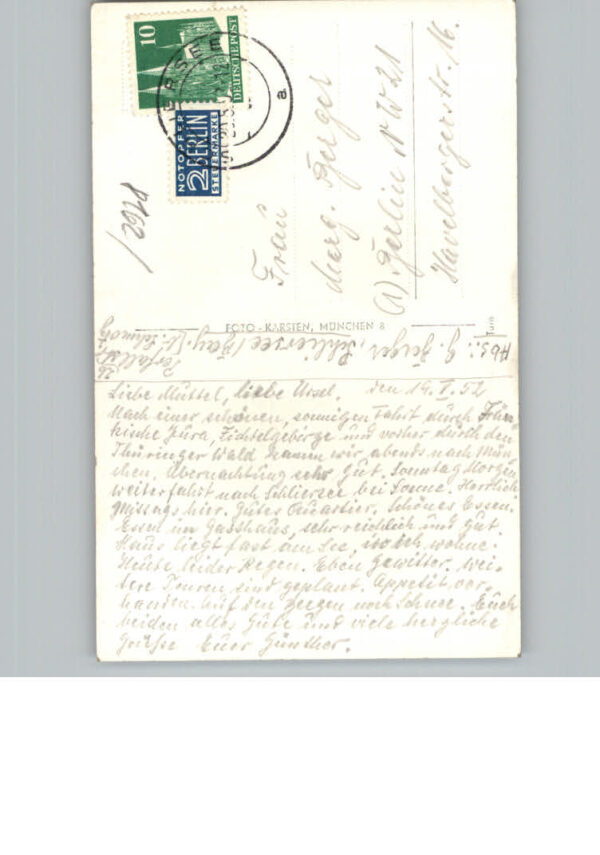 10
DEUTSCHE POST
SCHLIERSEE
a
NOTOPFER
2 BERLIN
STEUERMARKE
Frau
Marg. Berger
(1) Berlin NW 21
Havelbergerstr. 16.
FOTO-KARSTEN, MÜNCHEN 8
Abs: G. Berger, Schliersee/Bay.
Liebe Muttel, liebe Ursel. den 19.V.52
Nach einer schönen, sonnigen Fahrt durch Frän-
kische Jura, Fichtelgebirge und vorher durch den
Thüringer Wald kamen wir abends nach Mün-
chen. Übernachtung sehr gut. Sonntag Morgen
Weiterfahrt nach Schliersee bei Sonne. Herrlich
mittags hier. Gutes Quartier. Schönes Essen.
Essen im Gasthaus, sehr reichlich und gut
Haus liegt fast am See, wo ich wohne.
Heute leider Regen. Eben Gewitter. Wei-
tere Touren sind geplant. Appetit vor-
handen. Auf den Bergen noch Schnee. Euch
beiden alles Gute und viele herzliche
Grüße Euer Günther.